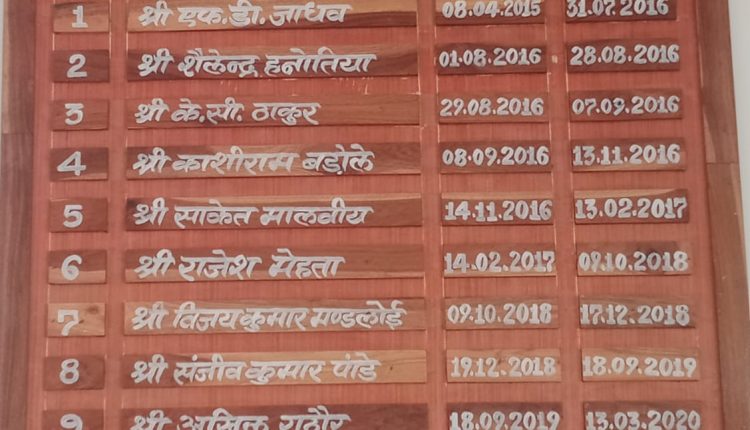 1 श्री एफ.डी. जाधव 08.04.2015 31.07.2016
2 श्री शैलेन्द्र हनोतिया 01.08.2016 28.08.2016
3 श्री के.सी. ठाकुर 29.08.2016 07.09.2016
4 श्री काशीराम बड़ोले 08.09.2016 13.11.2016
5 श्री साकेत मालवीय 14.11.2016 13.02.2017
6 श्री राजेश मेहता 14.02.2017 09.10.2018
7 श्री विजय कुमार मण्डलोई 09.10.2018 17.12.2018
8 श्री संजीव कुमार पांडे 19.12.2018 18.09.2019
9 श्री राठौर 18.09.2019 13.03.2020